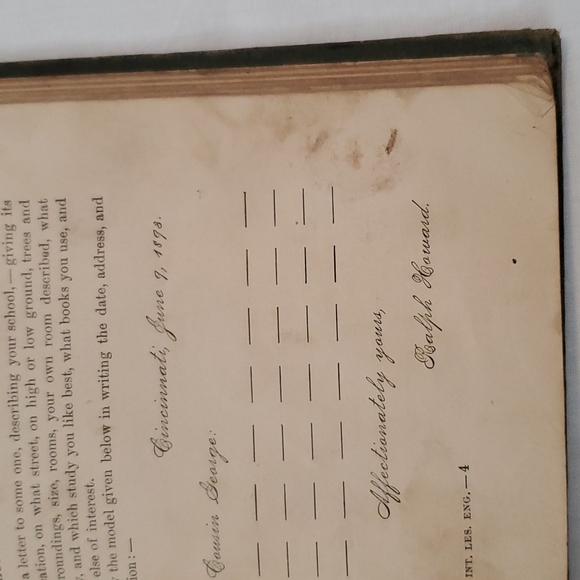 a letter to some one, describing your school, — giving its
ation, on what street, on high or low ground, trees and
roundings, size, rooms, your own room described, what
, and which study you like best, what books you use, and
else of interest.
the model given below in writing the date, address, and
ion: —
Cincinnati, June 7, 1878.
Cousin George:
Affectionately yours,
Ralph Howard.
INT. LES. ENG.—4